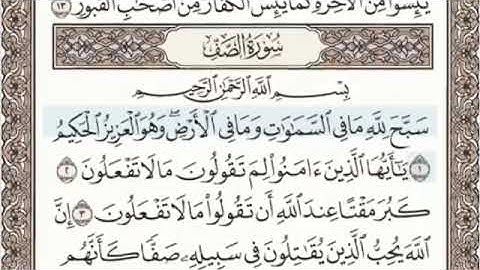 يَئِسُوا۟ مِنَ ٱلْـَٔاخِرَةِ كَمَا يَئِسَ ٱلْكُفَّارُ مِنْ أَصْحَٰبِ ٱلْقُبُورِ ١٣
سُورَةُ الصَّفِّ
بِسْمِ ٱللَّهِ ٱلرَّحْمَٰنِ ٱلرَّحِيمِ
سَبَّحَ لِلَّهِ مَا فِى ٱلسَّمَٰوَٰتِ وَمَا فِى ٱلْأَرْضِ ۖ وَهُوَ ٱلْعَزِيزُ ٱلْحَكِيمُ
١ يَٰٓأَيُّهَا ٱلَّذِينَ ءَامَنُوا۟ لِمَ تَقُولُونَ مَا لَا تَفْعَلُونَ ٢
كَبُرَ مَقْتًا عِندَ ٱللَّهِ أَن تَقُولُوا۟ مَا لَا تَفْعَلُونَ ٣ إِنَّ
ٱللَّهَ يُحِبُّ ٱلَّذِينَ يُقَٰتِلُونَ فِى سَبِيلِهِۦ صَفًّا كَأَنَّهُم